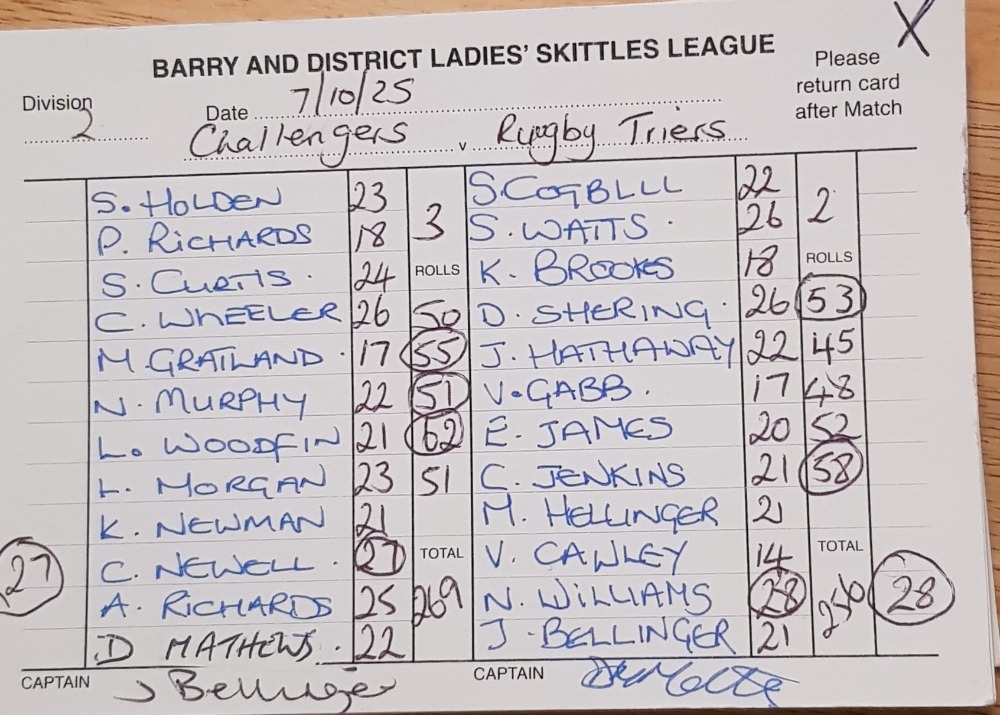 X
BARRY AND DISTRICT LADIES' SKITTLES LEAGUE
Please
return card
after Match
Division 2
Date 7/10/25
Challengers v Rugby Triers
S. HOLDEN 23 3 S. COGBLLL 22 2
P. RICHARDS 18 S. WATTS 26
S. CURTIS 24 ROLLS K. BROOKES 18 ROLLS
C. WHEELER 26 50 D. SHERING 26 53
M GRATLAND 17 55 J. HATHAWAY 22 45
N. MURPHY 22 51 V. GABB 17 48
L. WOODFIN 21 62 E. JAMES 20 52
L. MORGAN 23 51 C. JENKINS 21 58
K. NEWMAN 21 M. HELLINGER 21
27 C. NEWELL 27 TOTAL V. CAWLEY 14 TOTAL
A. RICHARDS 25 269 N. WILLIAMS 28 256 28
D MATHEWS 22 J. BELLINGER 21
CAPTAIN J Bellinger CAPTAIN